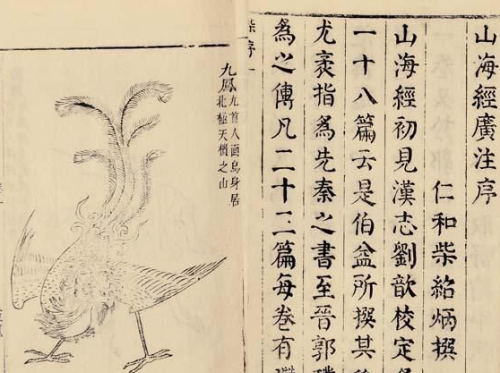 山海經廣注序
仁和柴紹炳撰
山海經初見漢志劉歆校定
一十八篇云是伯益所撰其後
尤袤指為先秦之書至晉郭璞
為之傳凡二十三篇每卷有
柴序
九鳳
九首人面鳥身居
北極天櫃之山